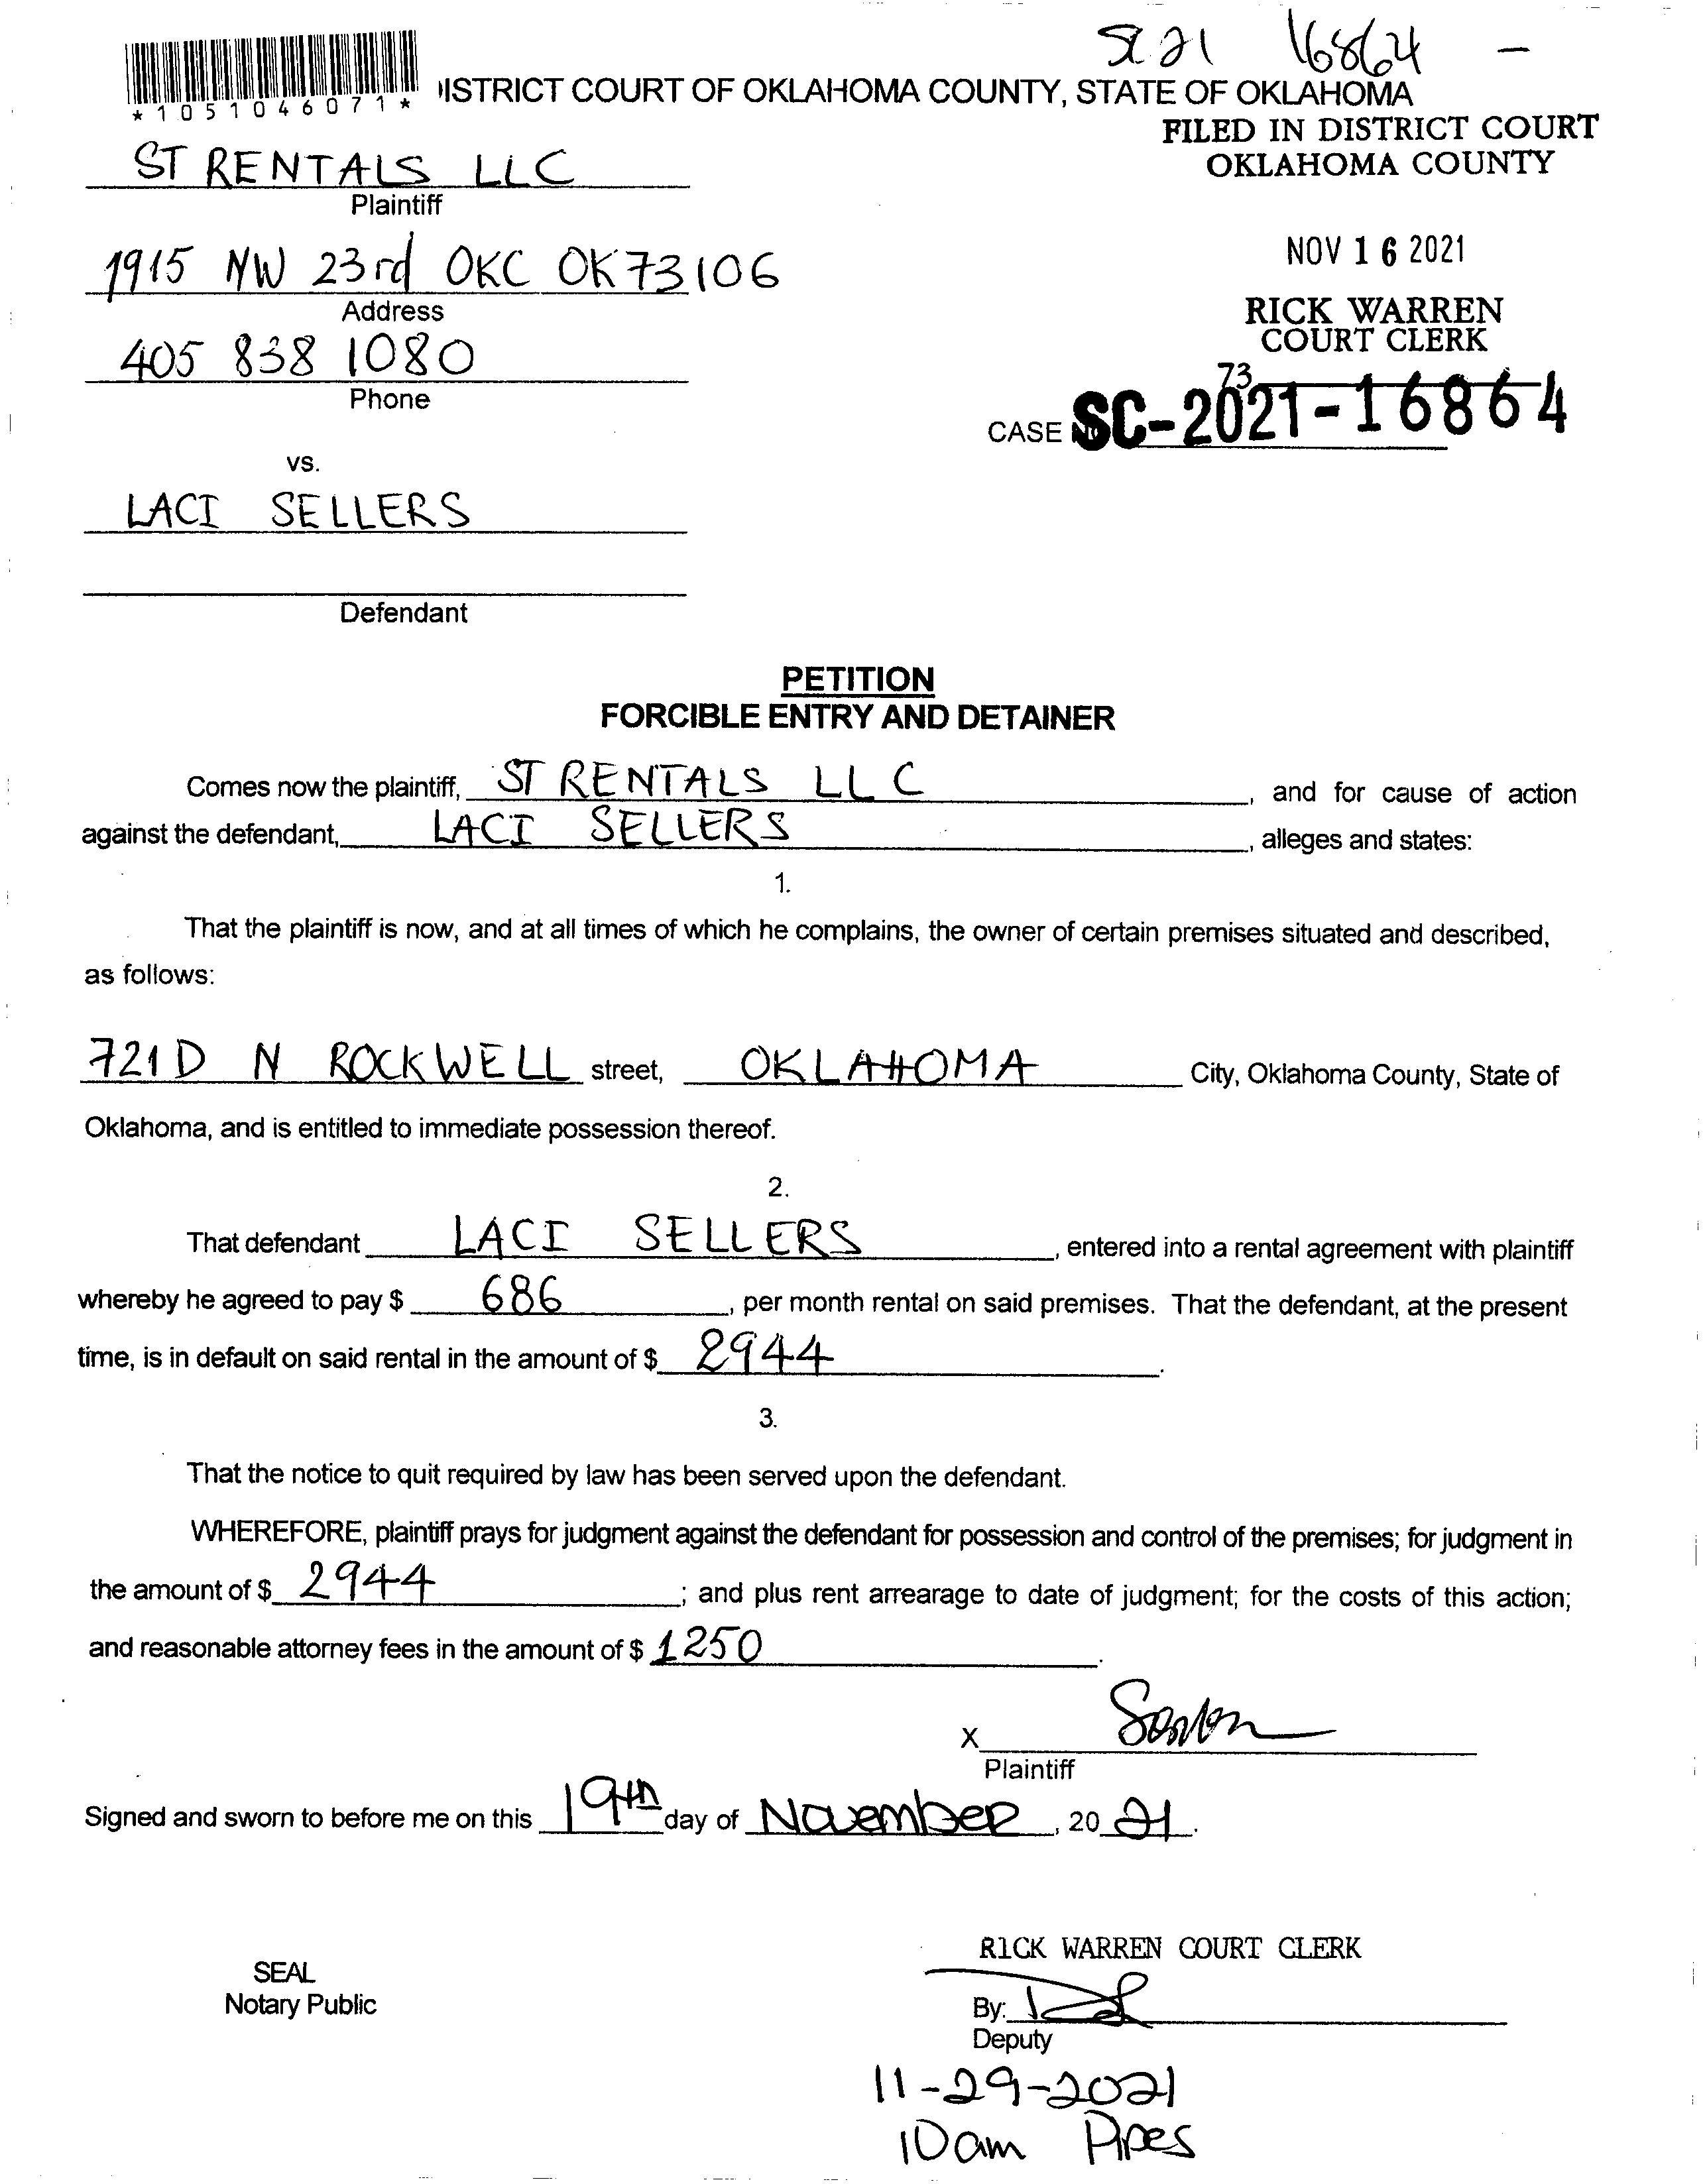 SC 21 16864 -
*1051046071*
ISTRICT COURT OF OKLAHOMA COUNTY, STATE OF OKLAHOMA
FILED IN DISTRICT COURT
OKLAHOMA COUNTY
ST RENTALS LLC
Plaintiff
NOV 16 2021
1915 NW 23rd OKC OK 73106
Address
RICK WARREN
COURT CLERK
405 838 1080
Phone
73
CASE NO SC-2021-16864
vs.
LACI SELLERS
Defendant
PETITION
FORCIBLE ENTRY AND DETAINER
Comes now the plaintiff, ST RENTALS LLC, and for cause of action
against the defendant, LACI SELLERS, alleges and states:
1.
That the plaintiff is now, and at all times of which he complains, the owner of certain premises situated and described,
as follows:
721D N ROCKWELL street, OKLAHOMA City, Oklahoma County, State of
Oklahoma, and is entitled to immediate possession thereof.
2.
That defendant LACI SELLERS, entered into a rental agreement with plaintiff
whereby he agreed to pay $ 686, per month rental on said premises. That the defendant, at the present
time, is in default on said rental in the amount of $ 2944.
3.
That the notice to quit required by law has been served upon the defendant.
WHEREFORE, plaintiff prays for judgment against the defendant for possession and control of the premises; for judgment in
the amount of $ 2944; and plus rent arrearage to date of judgment; for the costs of this action;
and reasonable attorney fees in the amount of $ 1250.
X
Plaintiff
Signed and sworn to before me on this 19th day of November, 20 21.
RICK WARREN COURT CLERK
SEAL
Notary Public
By:
Deputy
11-29-2021
10am Pipes